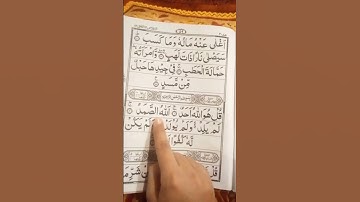 اَغْنٰى عَنْهُ مَالُهٗ وَمَا كَسَبَ
سَيَصْلٰى نَارًا ذَاتَ لَهَبٍ وَّامْرَاَتُهٗ
حَمَّالَةَ الْحَطَبِ فِيْ جِيْدِهَا حَبْلٌ
مِّنْ مَّسَدٍ
قُلْ هُوَ اللّٰهُ اَحَدٌ اَللّٰهُ الصَّمَدُ
لَمْ يَلِدْ وَلَمْ يُوْلَدْ وَلَمْ يَكُنْ
لَّهٗ كُفُوًا
قُلْ